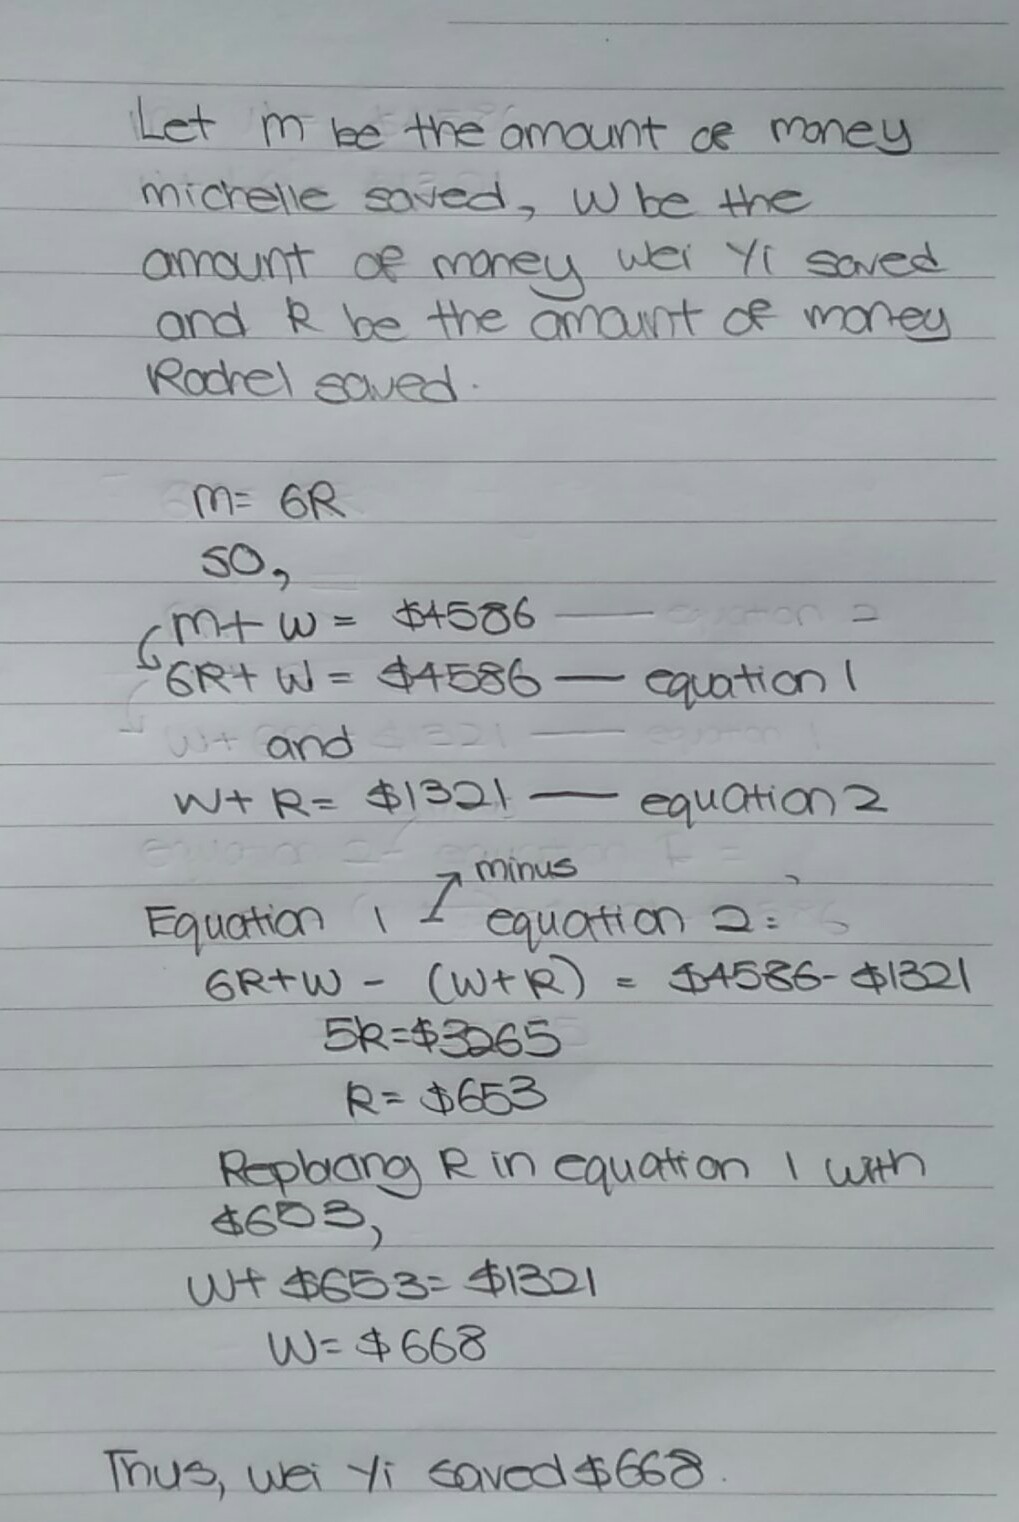 Let m be the amount of money
michelle saved, W be the
amount of money wei Yi saved
and R be the amount of money
Rachel saved.
m = 6R
so,
m + W = $4586 —
6R + W = $4586 — equation 1
and
W + R = $1321 — equation 2
minus
Equation 1 equation 2:
6R+W - (W+R) = $4586 - $1321
5R = $3265
R = $653
Replacing R in equation 1 with
$653,
W + $653 = $1321
W = $668
Thus, wei Yi saved $668.